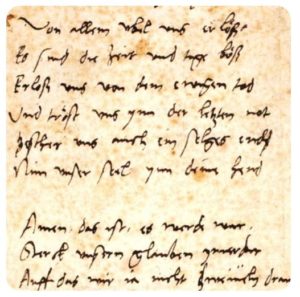 Von allem vbel vns erlöße
Es sind die zeit vnd tage böß
Erloß vns von dem ewigen tod
Vnd tröst vns ynn der letzten not
vns auch ein seliges end
Nim vnser seel ynn deine hend
Amen, das ist, es werde war,
Sterck vnsern glauben ymerdar
Auff das wir ia nicht zweiueln dran